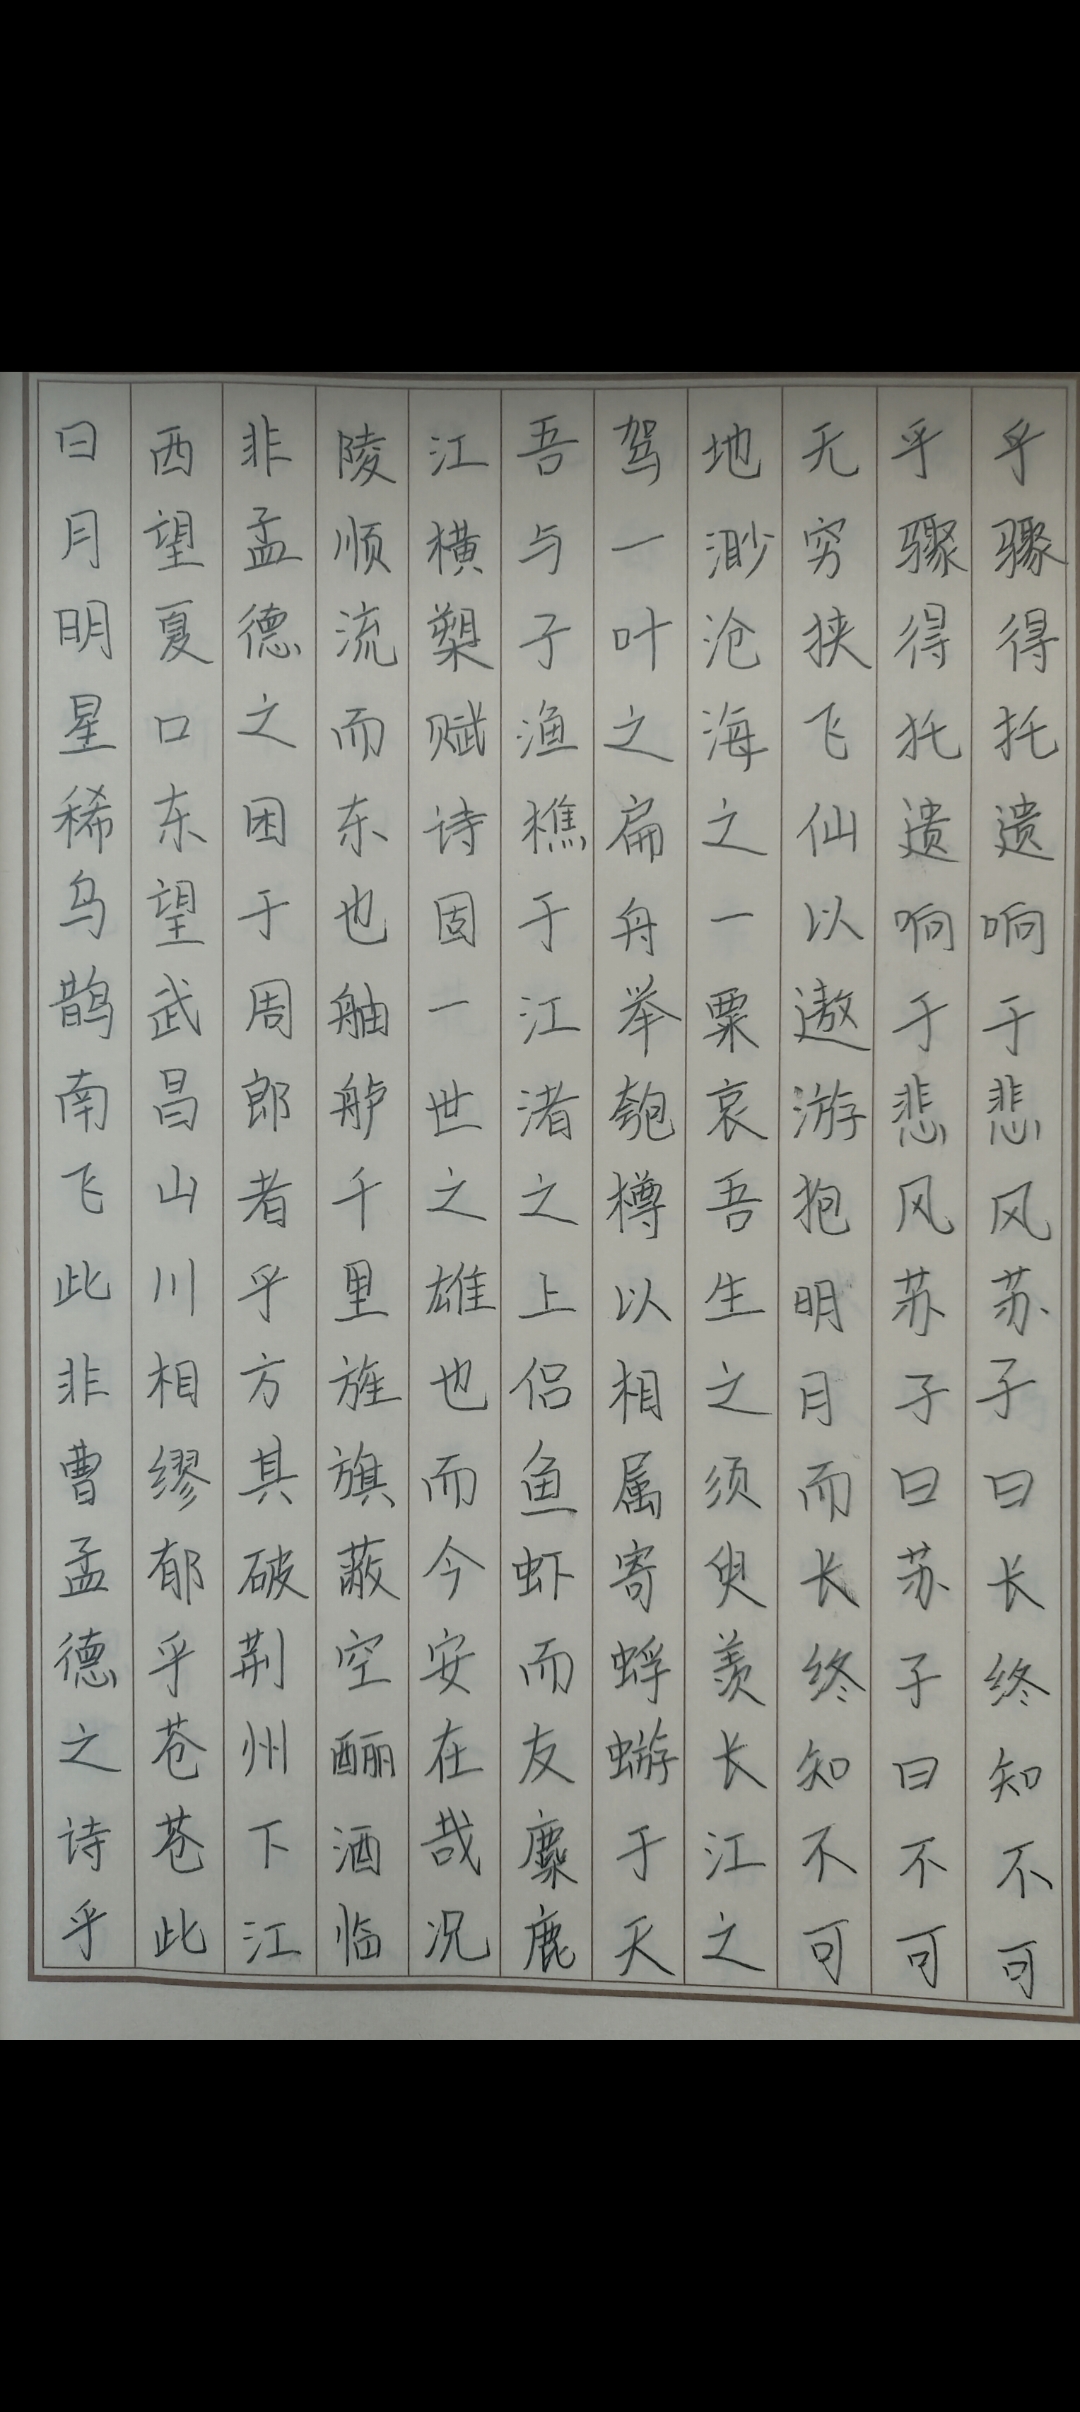 曰月明星稀乌鹊南飞此非曹孟德之诗乎
西望夏口东望武昌山川相缪郁乎苍苍此
非孟德之困于周郎者乎方其破荆州下江
陵顺流而东也舳舻千里旌旗蔽空酾酒临
江横槊赋诗固一世之雄也而今安在哉况
吾与子渔樵于江渚之上侣鱼虾而友麋鹿
驾一叶之扁舟举匏樽以相属寄蜉蝣于天
地渺沧海之一粟哀吾生之须臾羡长江之
无穷挟飞仙以遨游抱明月而长终知不可
乎骤得托遗响于悲风苏子曰苏子曰不可
乎骤得托遗响于悲风苏子曰长终知不可